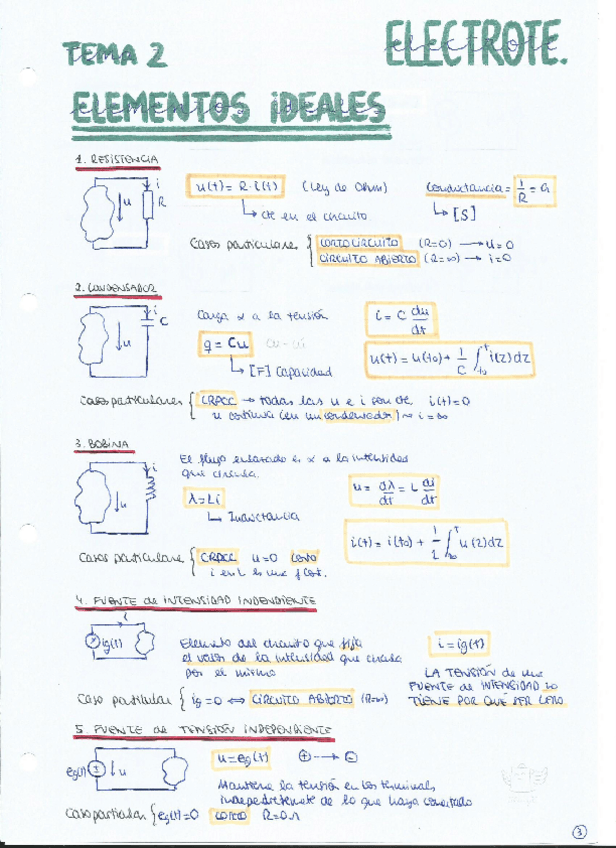 ELECTROTE.
TEMA 2
ELEMENTOS IDEALES
1. RESISTENCIA
i
u
R
u(t) = R·i(t) (Ley de Ohm)
Conductancia = 1/R = G
↳ cte en el circuito.
↳ [S]
Casos particulares { CORTOCIRCUITO (R=0) → u=0
CIRCUITO ABIERTO (R=∞) → i=0
2. CONDENSADOR
i
u
C
Carga α a la tensión
i = C du/dt
q = Cu
↳ [F] Capacidad
u(t) = u(t0) + 1/C ∫ i(z) dz
Casos particulares { CRPCC → todas las u e i son cte, i(t)=0
u continua (en un condensador) ~ i=∞
3. BOBINA
i
u
El flujo enlazado es α a la intensidad
que circula.
λ = Li
↳ Inductancia
u = dλ/dt = L di/dt
i(t) = i(t0) + 1/L ∫ u(z) dz
Casos particulares { CRPCC u=0 CORTO
i en L es una f cont.
4. FUENTE de INTENSIDAD INDENDIENTE
i
ig(t)
Elemento del circuito que fija
el valor de la intensidad que circula
por el mismo
i = ig(t)
LA TENSIÓN de una
FUENTE de INTENSIDAD NO
TIENE POR QUÉ SER CERO
Caso particular { ig=0 ⟺ CIRCUITO ABIERTO (R=∞)
5 FUENTE de TENSIÓN INDEPENDIENTE
eg(t)
u
u = eg(t) ⊕ ---> ⊖
Mantiene la tensión en los terminales
independientemente de lo que haya conectado
Caso particular { eg(t)=0 CORTO R=0
3